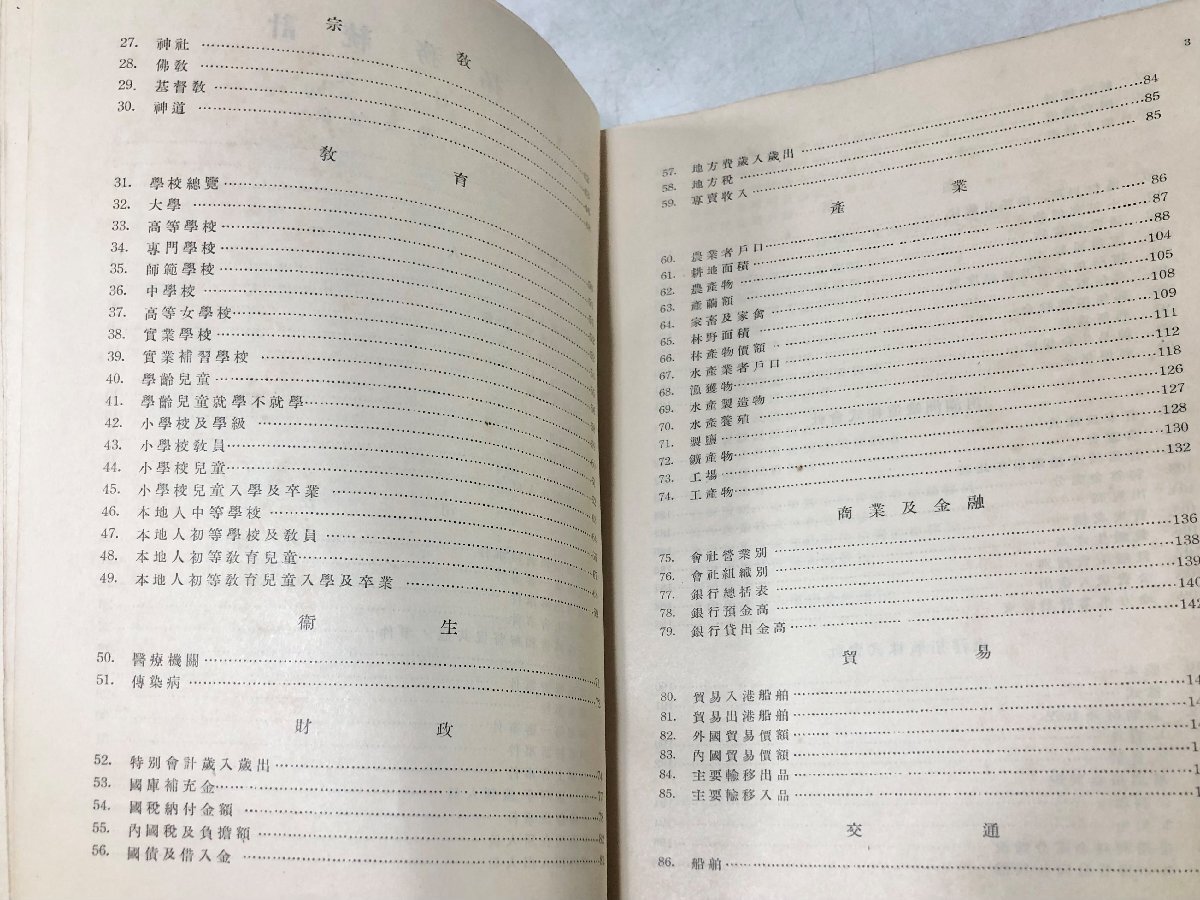 宗敎
27. 神社
28. 佛敎
29. 基督敎
30. 神道
敎育
31. 學校總覽
32. 大學
33. 高等學校
34. 專門學校
35. 師範學校
36. 中學校
37. 高等女學校
38. 實業學校
39. 實業補習學校
40. 學齡兒童
41. 學齡兒童就學不就學
42. 小學校及學級
43. 小學校敎員
44. 小學校兒童
45. 小學校兒童入學及卒業
46. 本地人中等學校
47. 本地人初等學校及敎員
48. 本地人初等敎育兒童
49. 本地人初等敎育兒童入學及卒業
衞生
50. 醫療機關
51. 傳染病
財政
52. 特別會計歲入歲出 74
53. 國庫補充金 77
54. 國稅納付金額
55. 內國稅及負擔額
56. 國債及借入金
3
57. 地方費歲入歲出 84
58. 地方稅 85
59. 專賣收入 85
產業
60. 農業者戶口 86
61. 耕地面積 87
62. 農產物 88
63. 產繭額 104
64. 家畜及家禽 105
65. 林野面積 108
66. 林產物價額 109
67. 水產業者戶口 111
68. 漁獲物 112
69. 水產製造物 118
70. 水產養殖 126
71. 製鹽 127
72. 鑛產物 128
73. 工場 130
74. 工產物 132
商業及金融
75. 會社營業別 136
76. 會社組織別 138
77. 銀行總括表 139
78. 銀行預金高 140
79. 銀行貸出金高 142
貿易
80. 貿易入港船舶
81. 貿易出港船舶
82. 外國貿易價額
83. 內國貿易價額
84. 主要輸移出品
85. 主要輸移入品
交通
86. 船舶